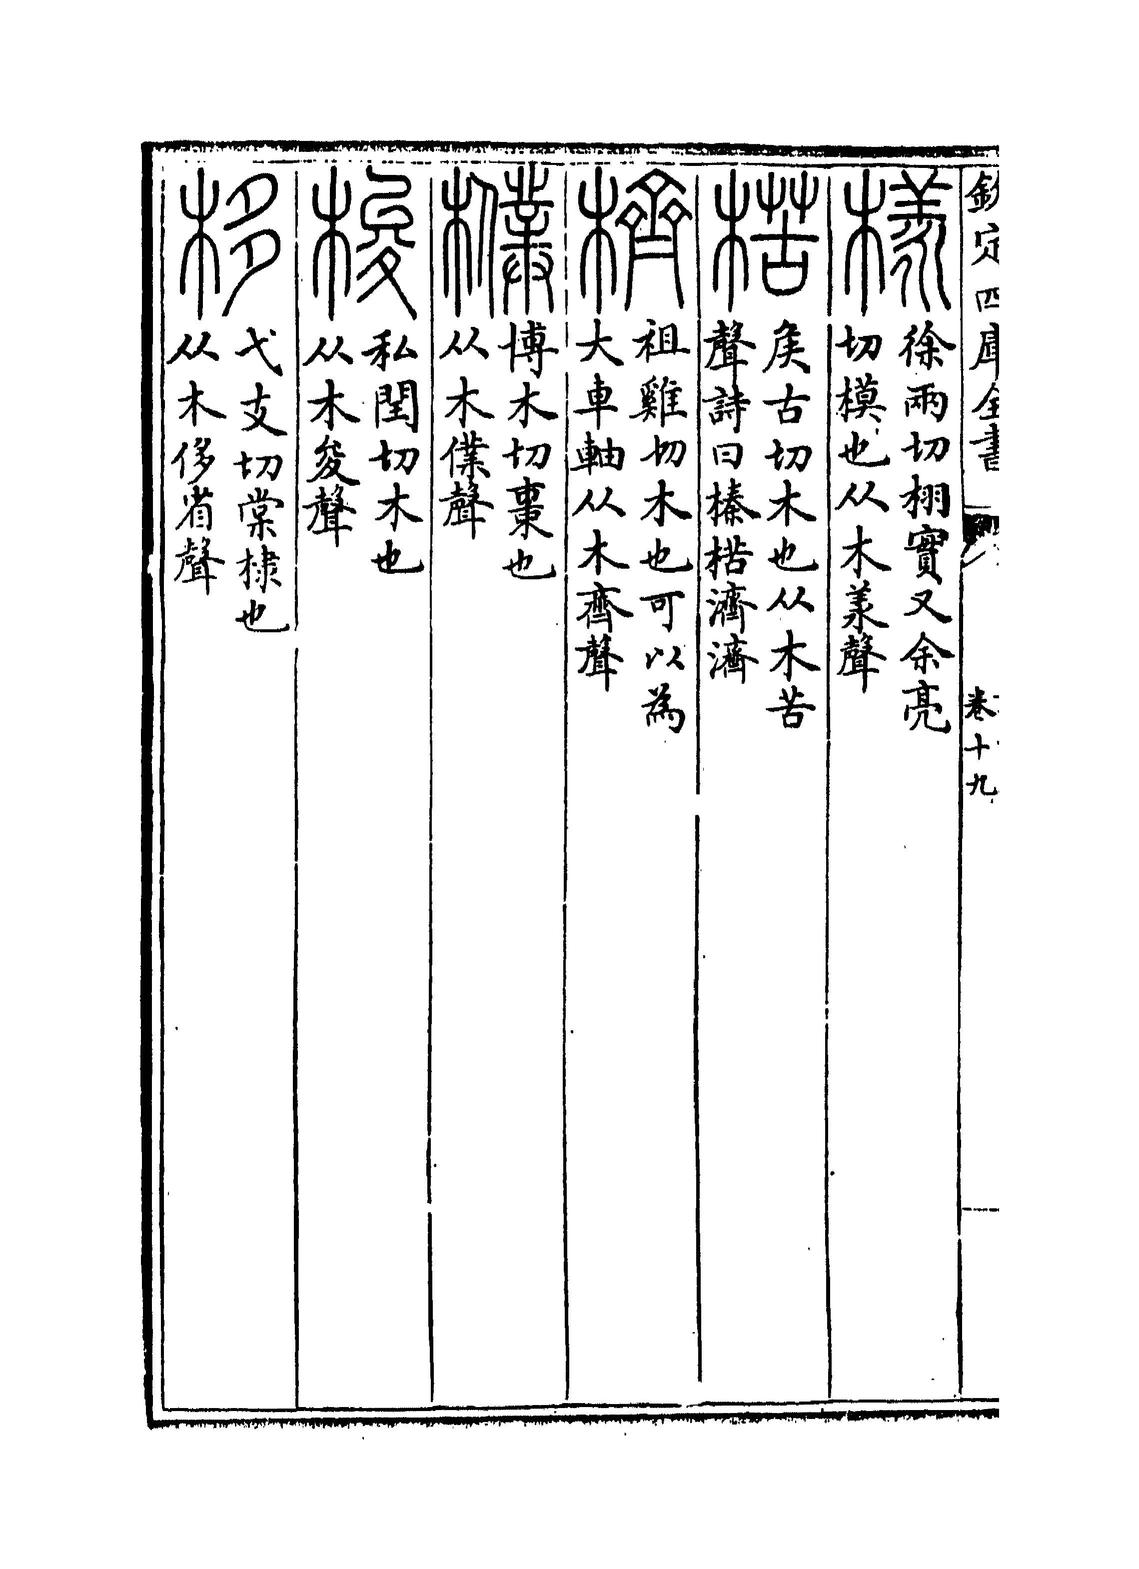 欽定四庫全書
卷十九
樣
徐兩切栩實又余亮
切模也从木羕聲
楛
矦古切木也从木苦
聲詩曰榛楛濟濟
櫅
祖雞切木也可以為
大車軸从木齊聲
㯷
博木切棗也
从木僕聲
梭
私閏切木也
从木夋聲
栘
弋支切棠棣也
从木侈省聲